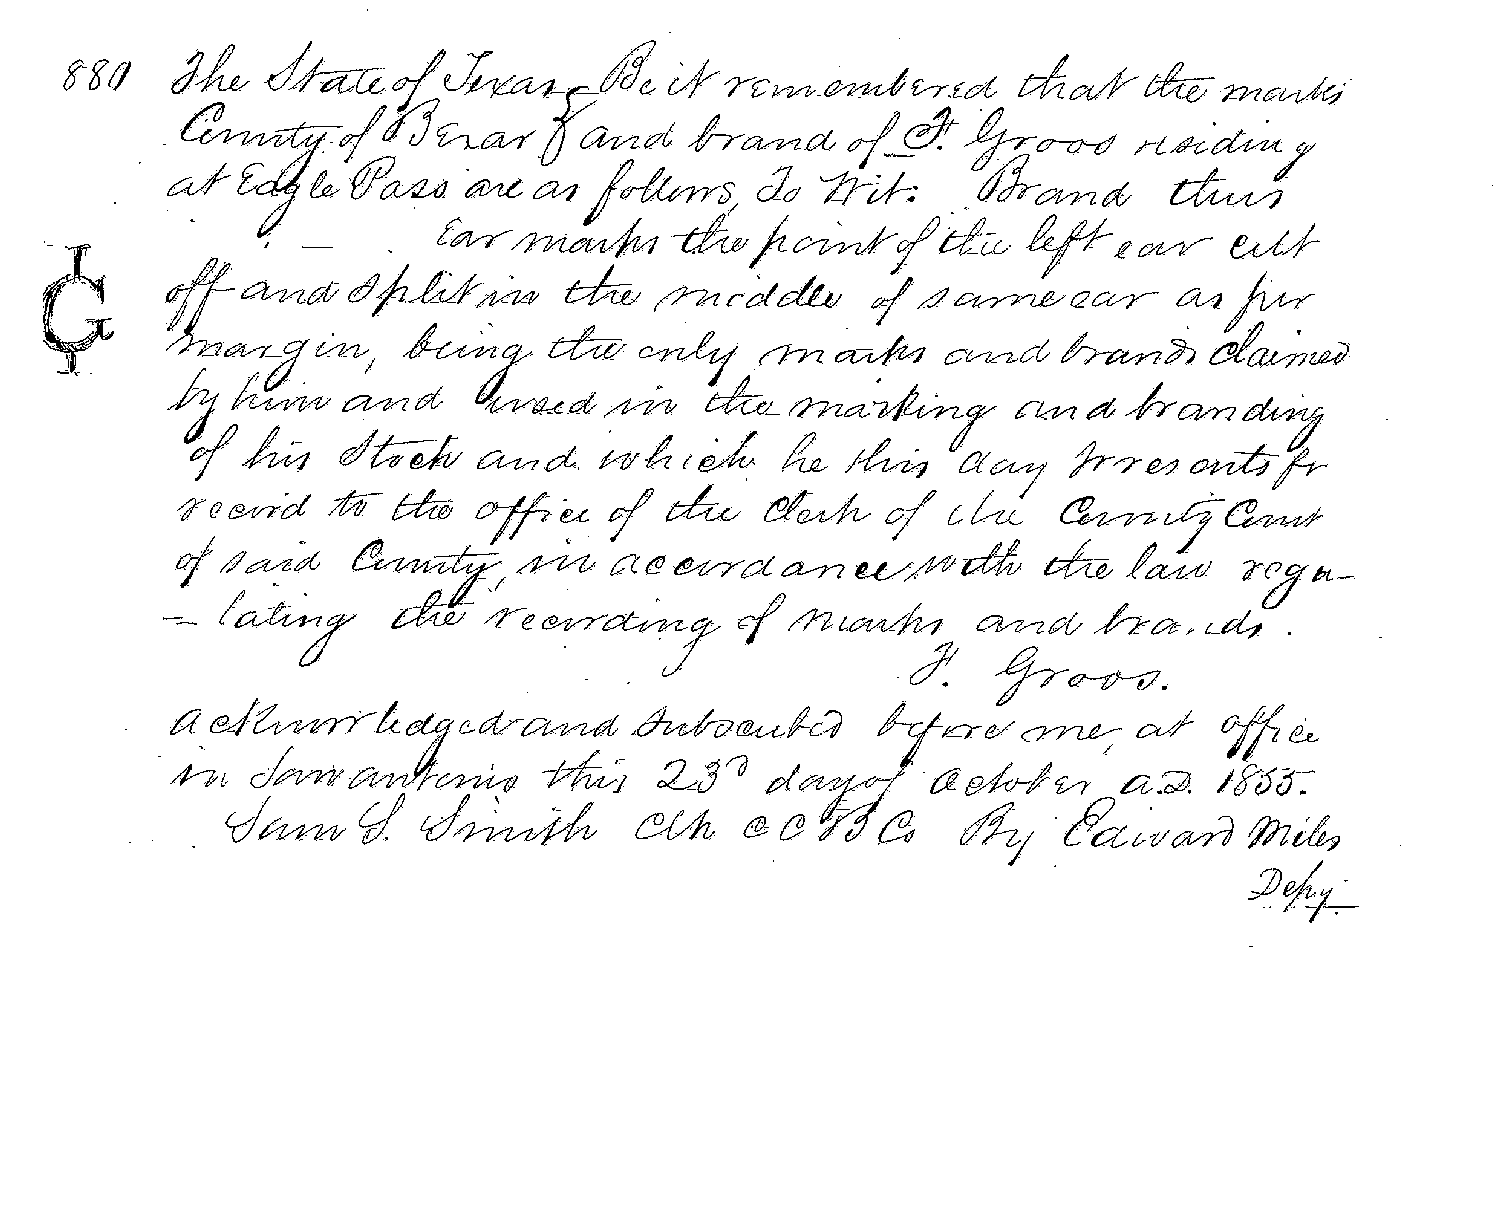 880 The State of Texas } Be it remembered that the marks
County of Bexar } and brand of F. Groos residing
at Eagle Pass are as follows, To Wit: Brand thus
Ear marks the point of the left ear cut
off and split in the middle of same ear as per
margin, being the only marks and brands claimed
by him and used in the marking and branding
of his Stock and which he this day presents for
record to the office of the Clerk of the County Court
of said County, in accordance with the law regu-
-lating the recording of marks and brands.
F. Groos.
Acknowledged and subscribed before me, at office
in San Antonio this 23d day of October A.D. 1855.
Sam S. Smith Clk C C B Co By Edward Miles
Depy